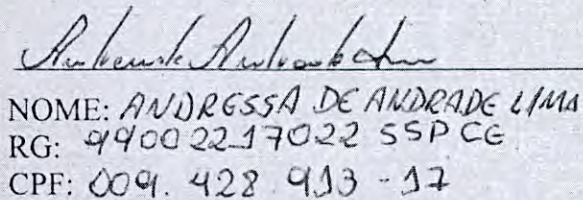 NOME: ANDRESSA DE ANDRADE LIMA
RG: 99002217022 SSP CE
CPF: 009.428.913-17